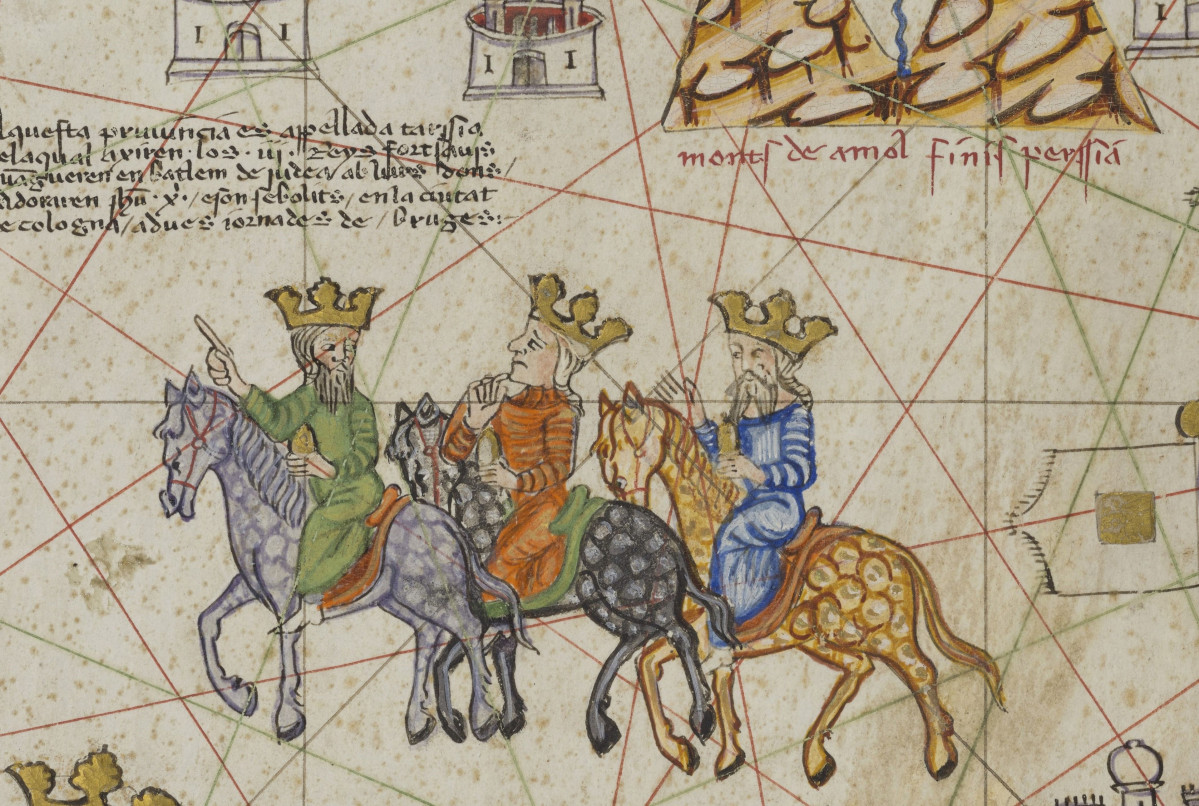 aquesta provincia es apellada tarssia
de la qual axiren los iii reys fort savis
en batlem de judea ab lurs dons
adoraren jhu xr e son sebolits en la ciutat
e cologna a dues jornades de bruges
monts de amol finis perssia
I I
I I
I